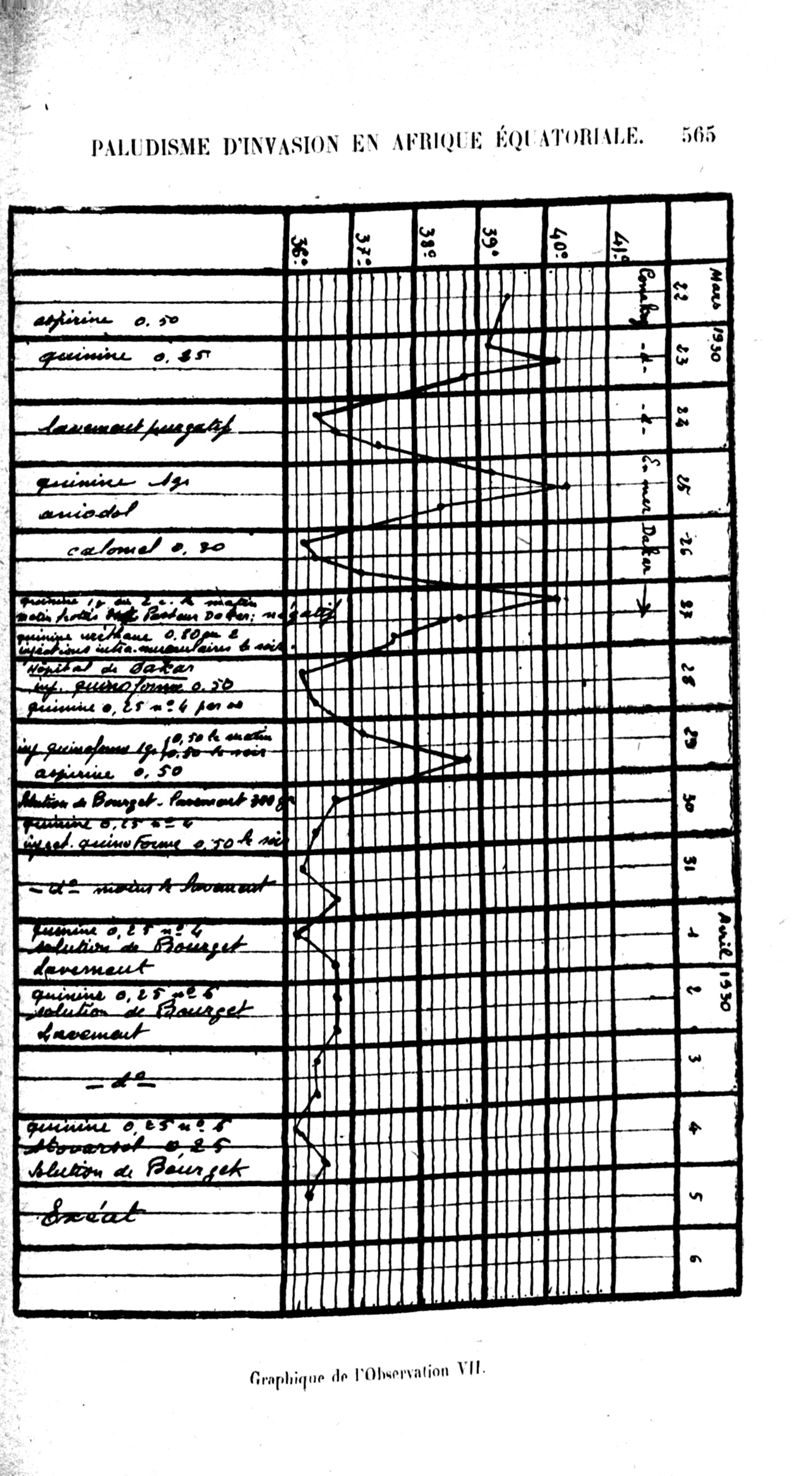 PALUDISME D'INVASION EN AFRIQUE ÉQUATORIALE. 565
36° 37° 38° 39° 40° 41°
Mars 1930
22
aspirine 0.50
Conakry
23
quinine 0,25
-d-
24
lavement purgatif
-d-
25
En mer Dakar →
quinine 1gr
aniodol
26
calomel 0,30
27
quinine 1gr en 2 le matin
Pasteur Dakar: négatif
quinine uréthane 0.80 en 2
injections intra-musculaires le soir.
28
Hôpital de Dakar
inj. quinoforme 0.50
quinine 0,25 nº 4 per os
29
inj quinoforme 1gr 0,50 le matin
0.50 le soir
aspirine 0,50
30
Solution de Bourget - Lavement 300 gr
quinine 0,25 nº 4
inject. quinoforme 0,50 le soir
31
- dº moins le lavement
Avril 1930
1
quinine 0,25 nº 4
solution de Bourget
Lavement
2
quinine 0,25 nº 6
solution de Bourget
Lavement
3
- dº
4
quinine 0,25 nº 6
Stovarsol 0,25
Solution de Bourget
5
Exéat
6
Graphique de l'Observation VII.